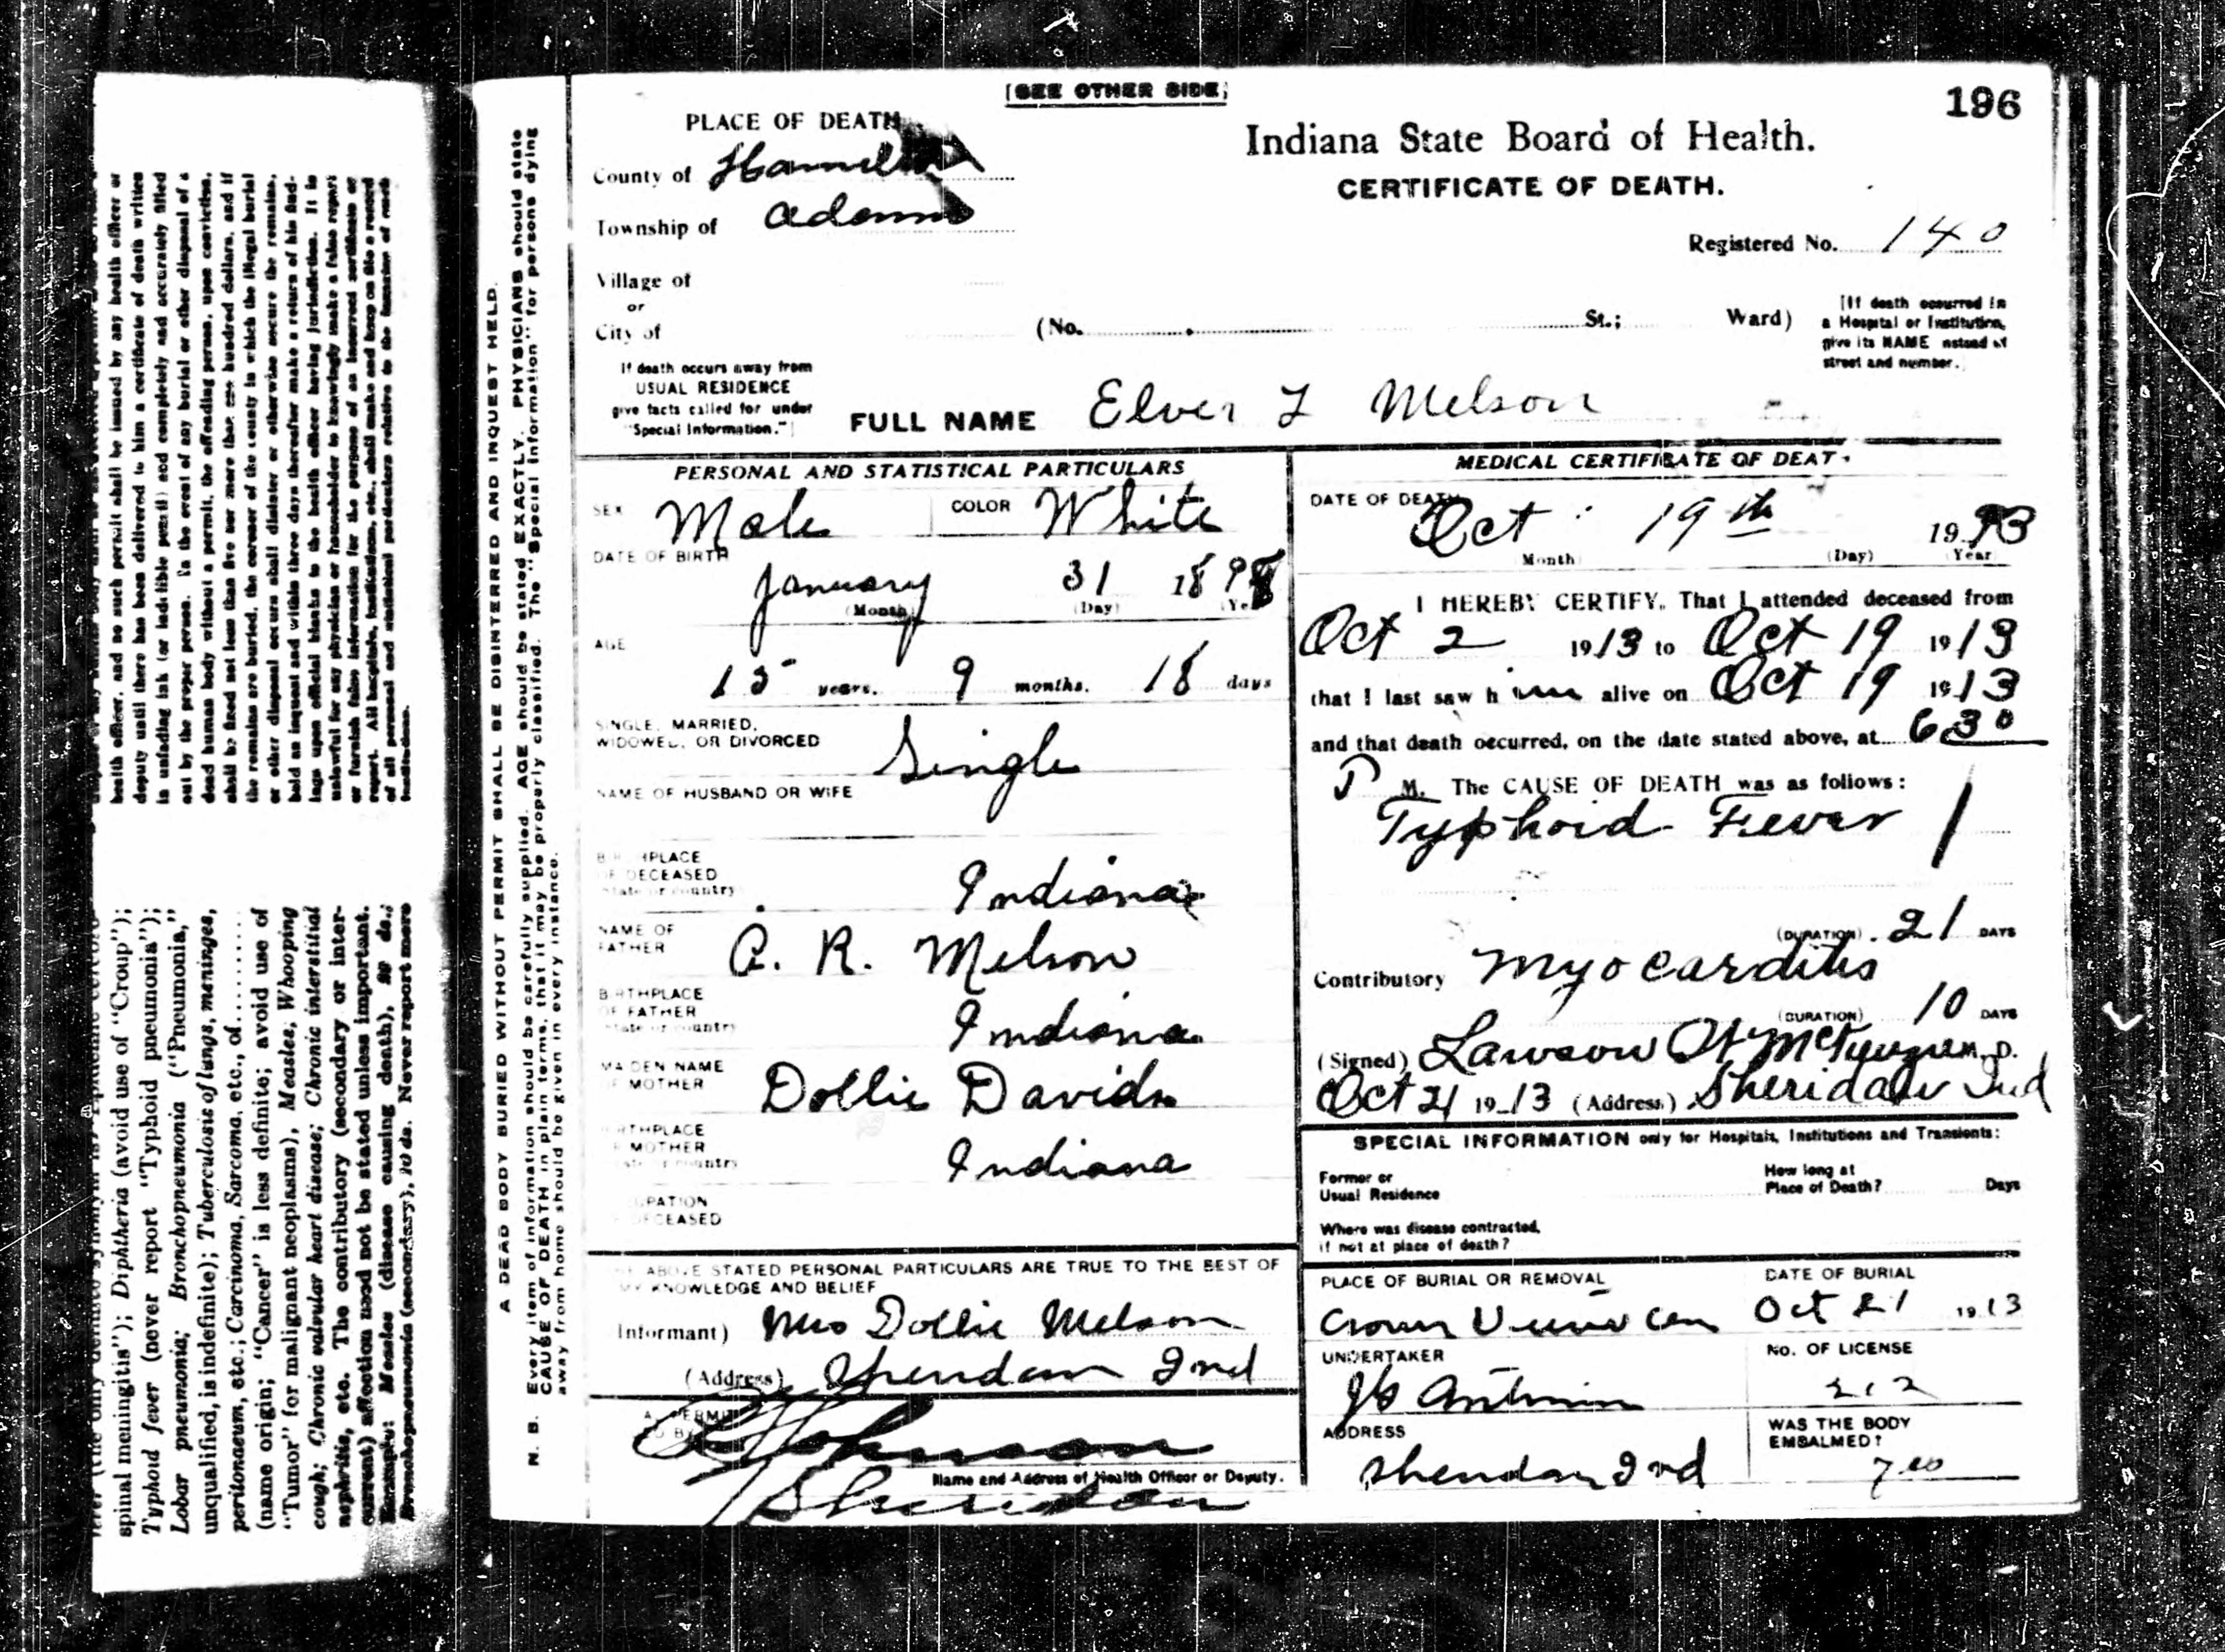 [SEE OTHER SIDE]
196
PLACE OF DEATH
Indiana State Board of Health.
CERTIFICATE OF DEATH.
County of Hamilton
Township of Adams
Registered No. 140
Village of
or
City of
(No. St.; Ward)
[If death occurred in
a Hospital or Institution,
give its NAME nstead of
street and number.]
If death occurs away from
USUAL RESIDENCE
give facts called for under
"Special Information."
FULL NAME Elver L Melson
PERSONAL AND STATISTICAL PARTICULARS
SEX Male COLOR White
DATE OF BIRTH
January 31 189
(Month) (Day) (Year)
AGE
15 years. 9 months. 18 days
SINGLE, MARRIED,
WIDOWED, OR DIVORCED Single
NAME OF HUSBAND OR WIFE
BIRTHPLACE
OF DECEASED
State or country Indiana
NAME OF
FATHER A. R. Melson
BIRTHPLACE
OF FATHER
State or country Indiana
MAIDEN NAME
OF MOTHER Dollie Davids
BIRTHPLACE
OF MOTHER
State or country Indiana
OCCUPATION
OF DECEASED
THE ABOVE STATED PERSONAL PARTICULARS ARE TRUE TO THE BEST OF
MY KNOWLEDGE AND BELIEF
Informant) Mrs Dollie Melson
(Address) Sheridan Ind
Johnson
Name and Address of Health Officer or Deputy.
Sheridan
MEDICAL CERTIFICATE OF DEATH
DATE OF DEATH
Oct 19th 1913
Month (Day) (Year)
I HEREBY CERTIFY, That I attended deceased from
Oct 2 1913 to Oct 19 1913
that I last saw him alive on Oct 19 1913
and that death occurred, on the date stated above, at 630
P M. The CAUSE OF DEATH was as follows:
Typhoid Fever 1
(DURATION) 21 DAYS
Contributory Myocarditis
(DURATION) 10 DAYS
(Signed) Lawson M. D.
Oct 21 1913 (Address) Sheridan Ind
SPECIAL INFORMATION only for Hospitals, Institutions and Transients:
Former or
Usual Residence
How long at
Place of Death? Days
Where was disease contracted,
if not at place of death?
PLACE OF BURIAL OR REMOVAL
Crown View Cem
DATE OF BURIAL
Oct 21 1913
UNDERTAKER
J S Antrim
No. OF LICENSE
212
ADDRESS
Sheridan Ind
WAS THE BODY
EMBALMED?
Yes
A DEAD BODY BURIED WITHOUT PERMIT SHALL BE DISINTERRED AND INQUEST HELD.
N. B. Every item of information should be carefully supplied. AGE should be stated EXACTLY. PHYSICIANS should state
CAUSE OF DEATH in plain terms, that it may be properly classified. The "Special Information" for persons dying
away from home should be given in every instance.
health officer, and no such permit shall be issued by any health officer or
deputy until there has been delivered to him a certificate of death written
in unfading ink (or indelible pencil) and completely and accurately filled
out by the proper person. In the event of any burial or other disposal of a
dead human body without a permit, the offending person, upon conviction,
shall be fined not less than five nor more than one hundred dollars, and if
the remains are buried, the coroner of the county in which the illegal burial
or other disposal occurs shall disinter or otherwise secure the remains,
hold an inquest and within three days thereafter make a return of his find-
ings upon official blanks to the health officer having jurisdiction. It is
unlawful for any physician or householder to knowingly make a false report
or furnish false information for the purpose of an incorrect certificate or
report. All hospitals, institutions, etc., shall make and keep on file a record
of all personal and statistical particulars relative to the inmates of such
institutions.
spinal meningitis"); Diphtheria (avoid use of "Croup");
Typhoid fever (never report "Typhoid pneumonia");
Lobar pneumonia; Bronchopneumonia ("Pneumonia,"
unqualified, is indefinite); Tuberculosis of lungs, meninges,
peritonaeum, etc.; Carcinoma, Sarcoma, etc., of..........
(name origin; "Cancer" is less definite; avoid use of
"Tumor" for malignant neoplasms), Measles, Whooping
cough; Chronic valvular heart disease; Chronic interstitial
nephritis, etc. The contributory (secondary or inter-
current) affection need not be stated unless important.
Example: Measles (disease causing death), 29 ds.;
Bronchopneumonia (secondary), 10 ds. Never report mere